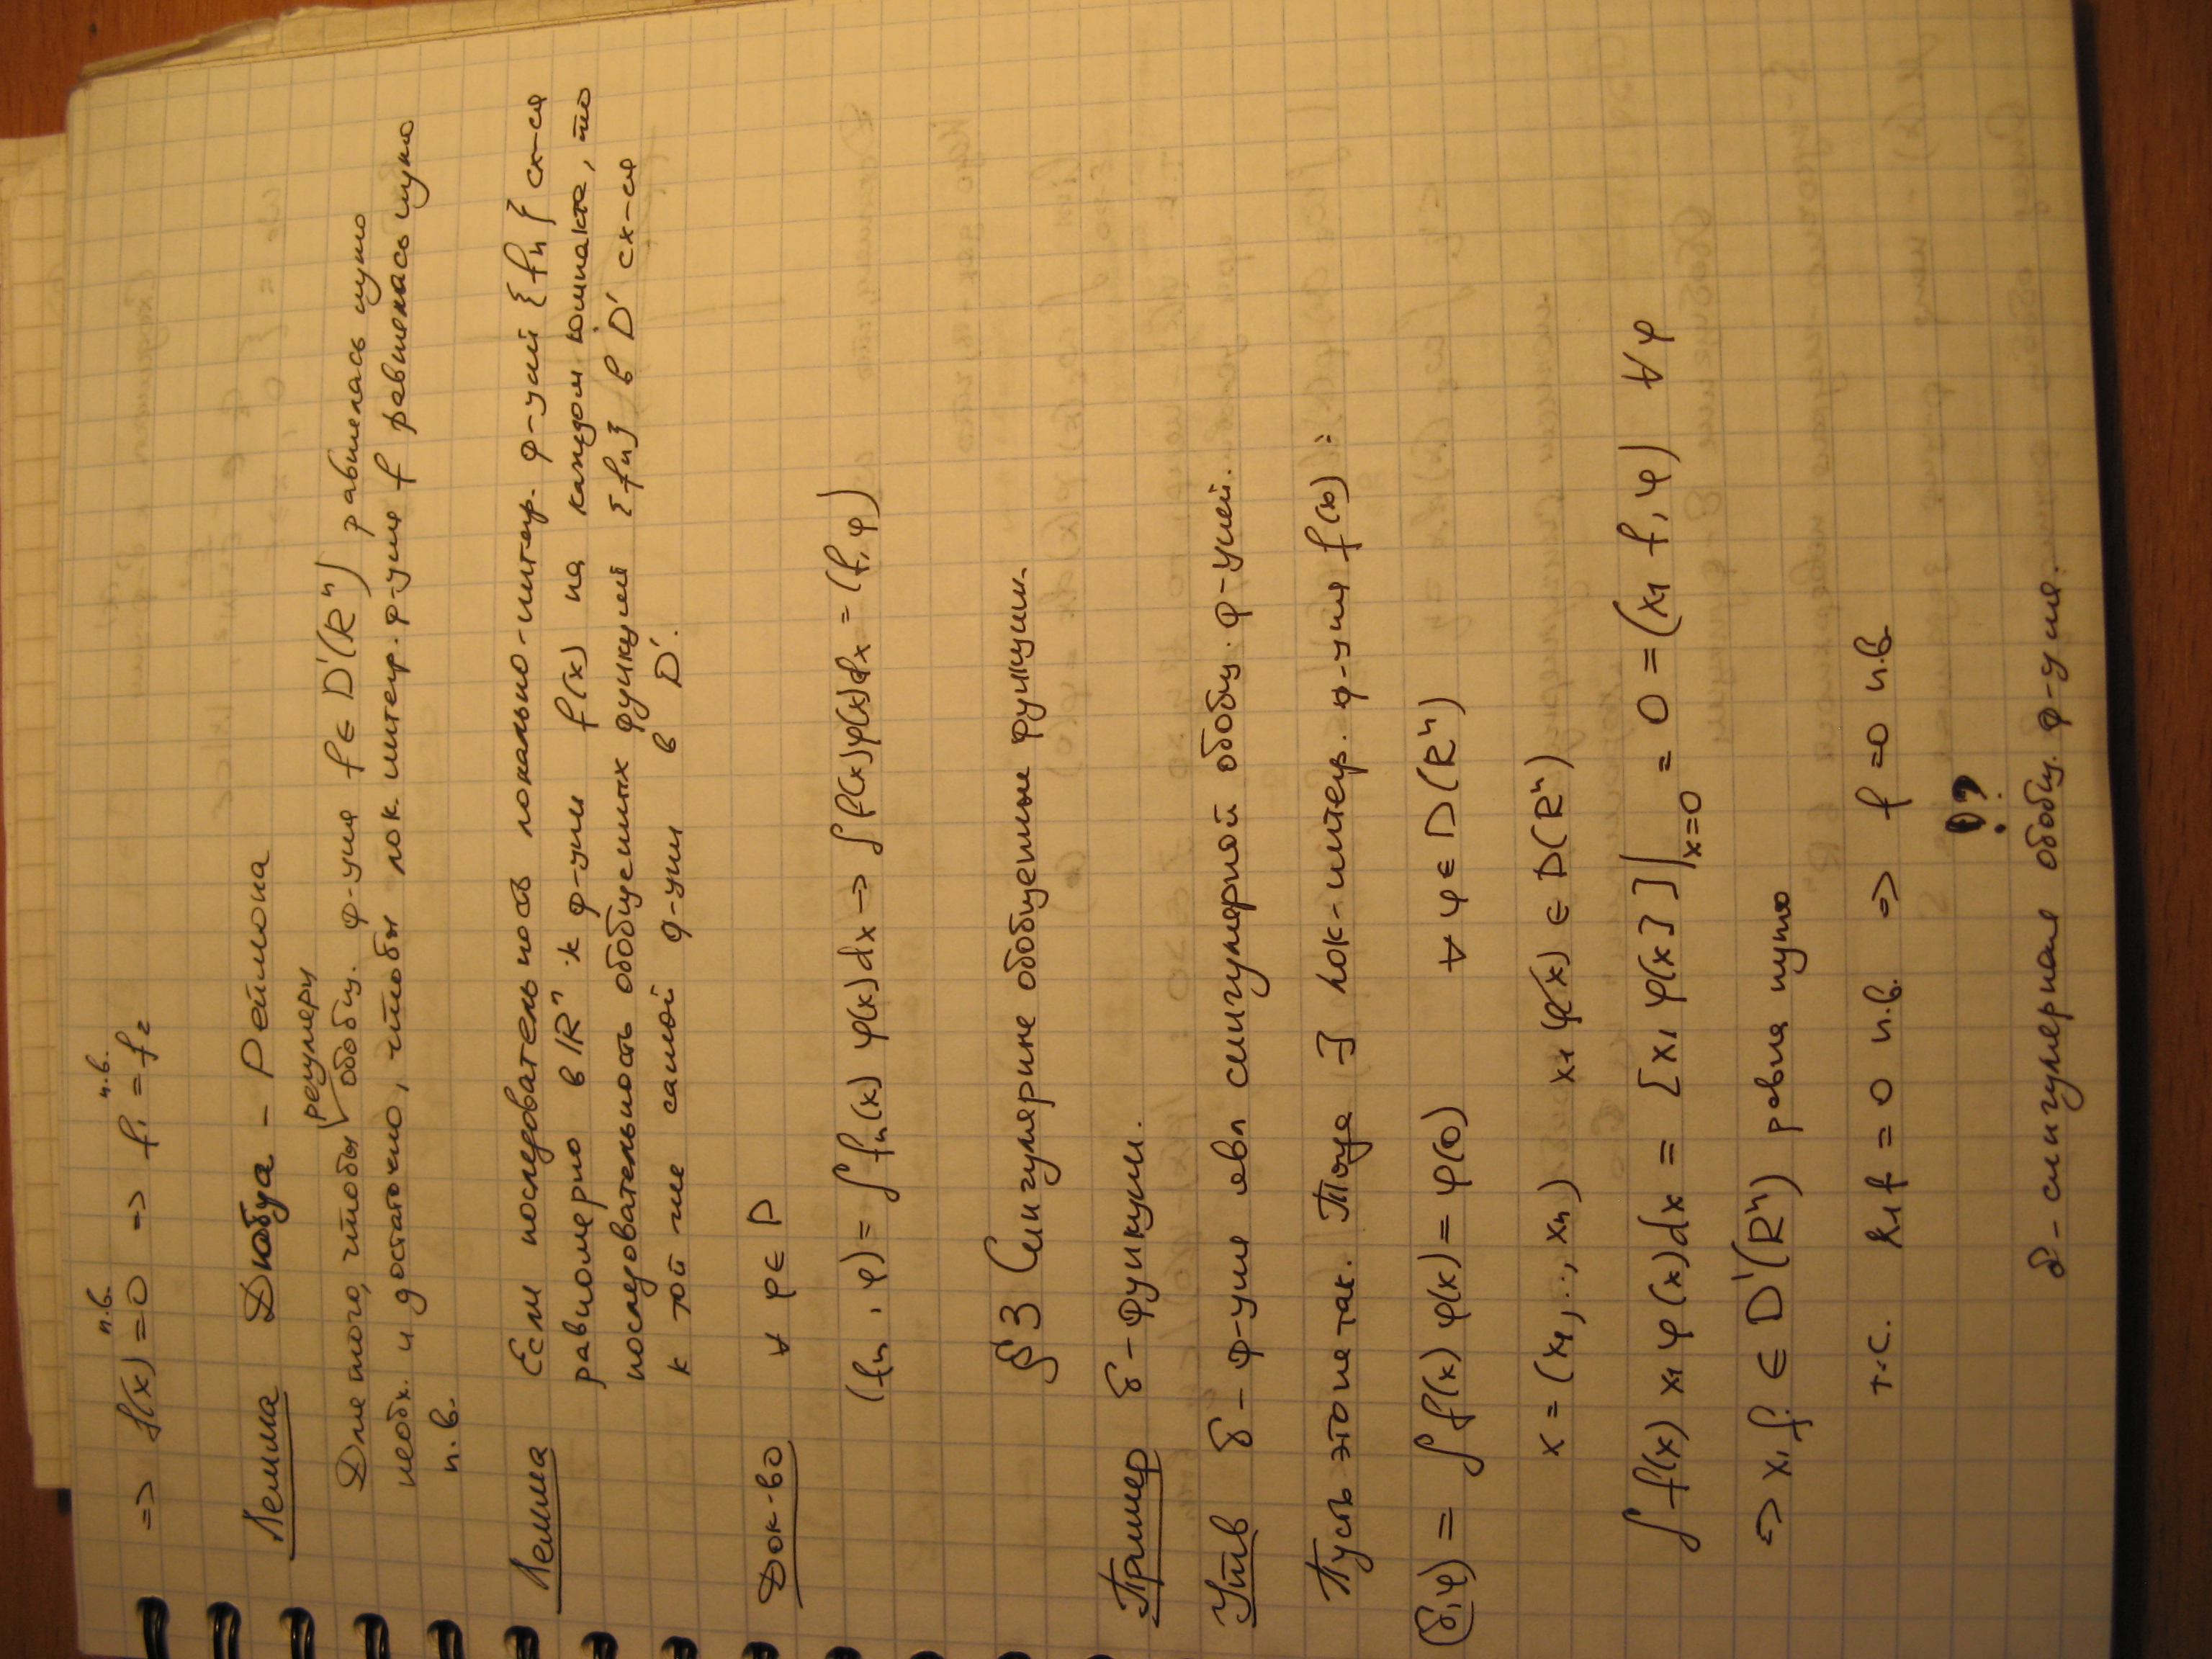 => f(x) п.в. = 0 => f₁ п.в. = f₂
Лемма Дюбуа - Реймона
регулярн
Для того, чтобы √ обобщ. ф-ция f ∈ D'(Rⁿ) равнялась нулю
необх. и достаточно, чтобы лок. интегр. ф-ция f равнялась нулю
п.в.
Лемма Если последовательность локально-интегр. ф-ций {fₙ} сх-ся
равномерно в ℝⁿ к ф-ции f(x) на каждом компакте, то
последовательность обобщенных функций {fₙ} в D' сх-ся
к той же самой ф-ции в D'.
Док-во ∀ φ ∈ D
(fₙ, φ) = ∫ fₙ(x) φ(x) dx -> ∫ f(x) φ(x) dx = (f, φ)
§3 Сингулярные обобщенные функции.
Пример δ - функции.
Утв δ - ф-ция явл сингулярной обобщ. ф-цией.
Пусть это не так. Тогда ∃ лок-интегр. ф-ция f(x):
(δ, φ) = ∫ f(x) φ(x) = φ(0) ∀ φ ∈ D(Rⁿ)
x = (x₁, ..., xₙ) x₁ φ(x) ∈ D(Rⁿ)
∫ f(x) x₁ φ(x) dx = [x₁ φ(x)]|ₓ₌₀ = 0 = (x₁ f, φ) ∀ φ
=> x₁ f ∈ D'(Rⁿ) равна нулю
т.е. x₁ f = 0 п.в. => f = 0 п.в.
!?
δ - сингулярная обобщ. ф-ция.